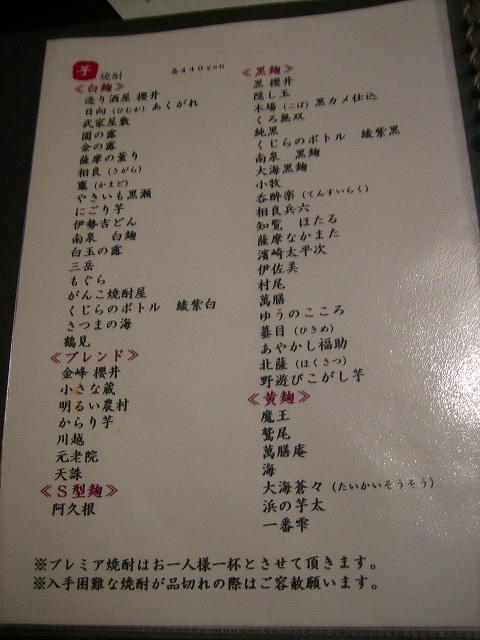 芋 焼酎 各440yen
≪白麹≫
造り酒屋 櫻井
日向（ひむか）あくがれ
武家屋敷
蘭の露
金の露
薩摩の薫り
相良（さがら）
竃（かまど）
やきいも黒瀬
にごり芋
伊勢吉どん
南泉 白麹
白玉の露
三岳
もぐら
がんこ焼酎屋
くじらのボトル 綾紫白
さつまの海
鶴見
≪ブレンド≫
金峰 櫻井
小さな蔵
明るい農村
からり芋
川越
元老院
天誅
≪S型麹≫
阿久根
≪黒麹≫
黒 櫻井
隠し玉
木場（こば）黒カメ仕込
くろ無双
純黒
くじらのボトル 綾紫黒
南泉 黒麹
大海黒麹
小牧
呑酔楽（てんすいらく）
相良兵六
知覧 ほたる
薩摩なかまた
濱崎太平次
伊佐美
村尾
萬膳
ゆうのこころ
蟇目（ひきめ）
あやかし福助
北薩（ほくさつ）
野遊びこがし芋
≪黄麹≫
魔王
鷲尾
萬膳庵
海
大海蒼々（たいかいそうそう）
浜の芋太
一番雫
※プレミア焼酎はお一人様一杯とさせて頂きます。
※入手困難な焼酎が品切れの際はご容赦願います。